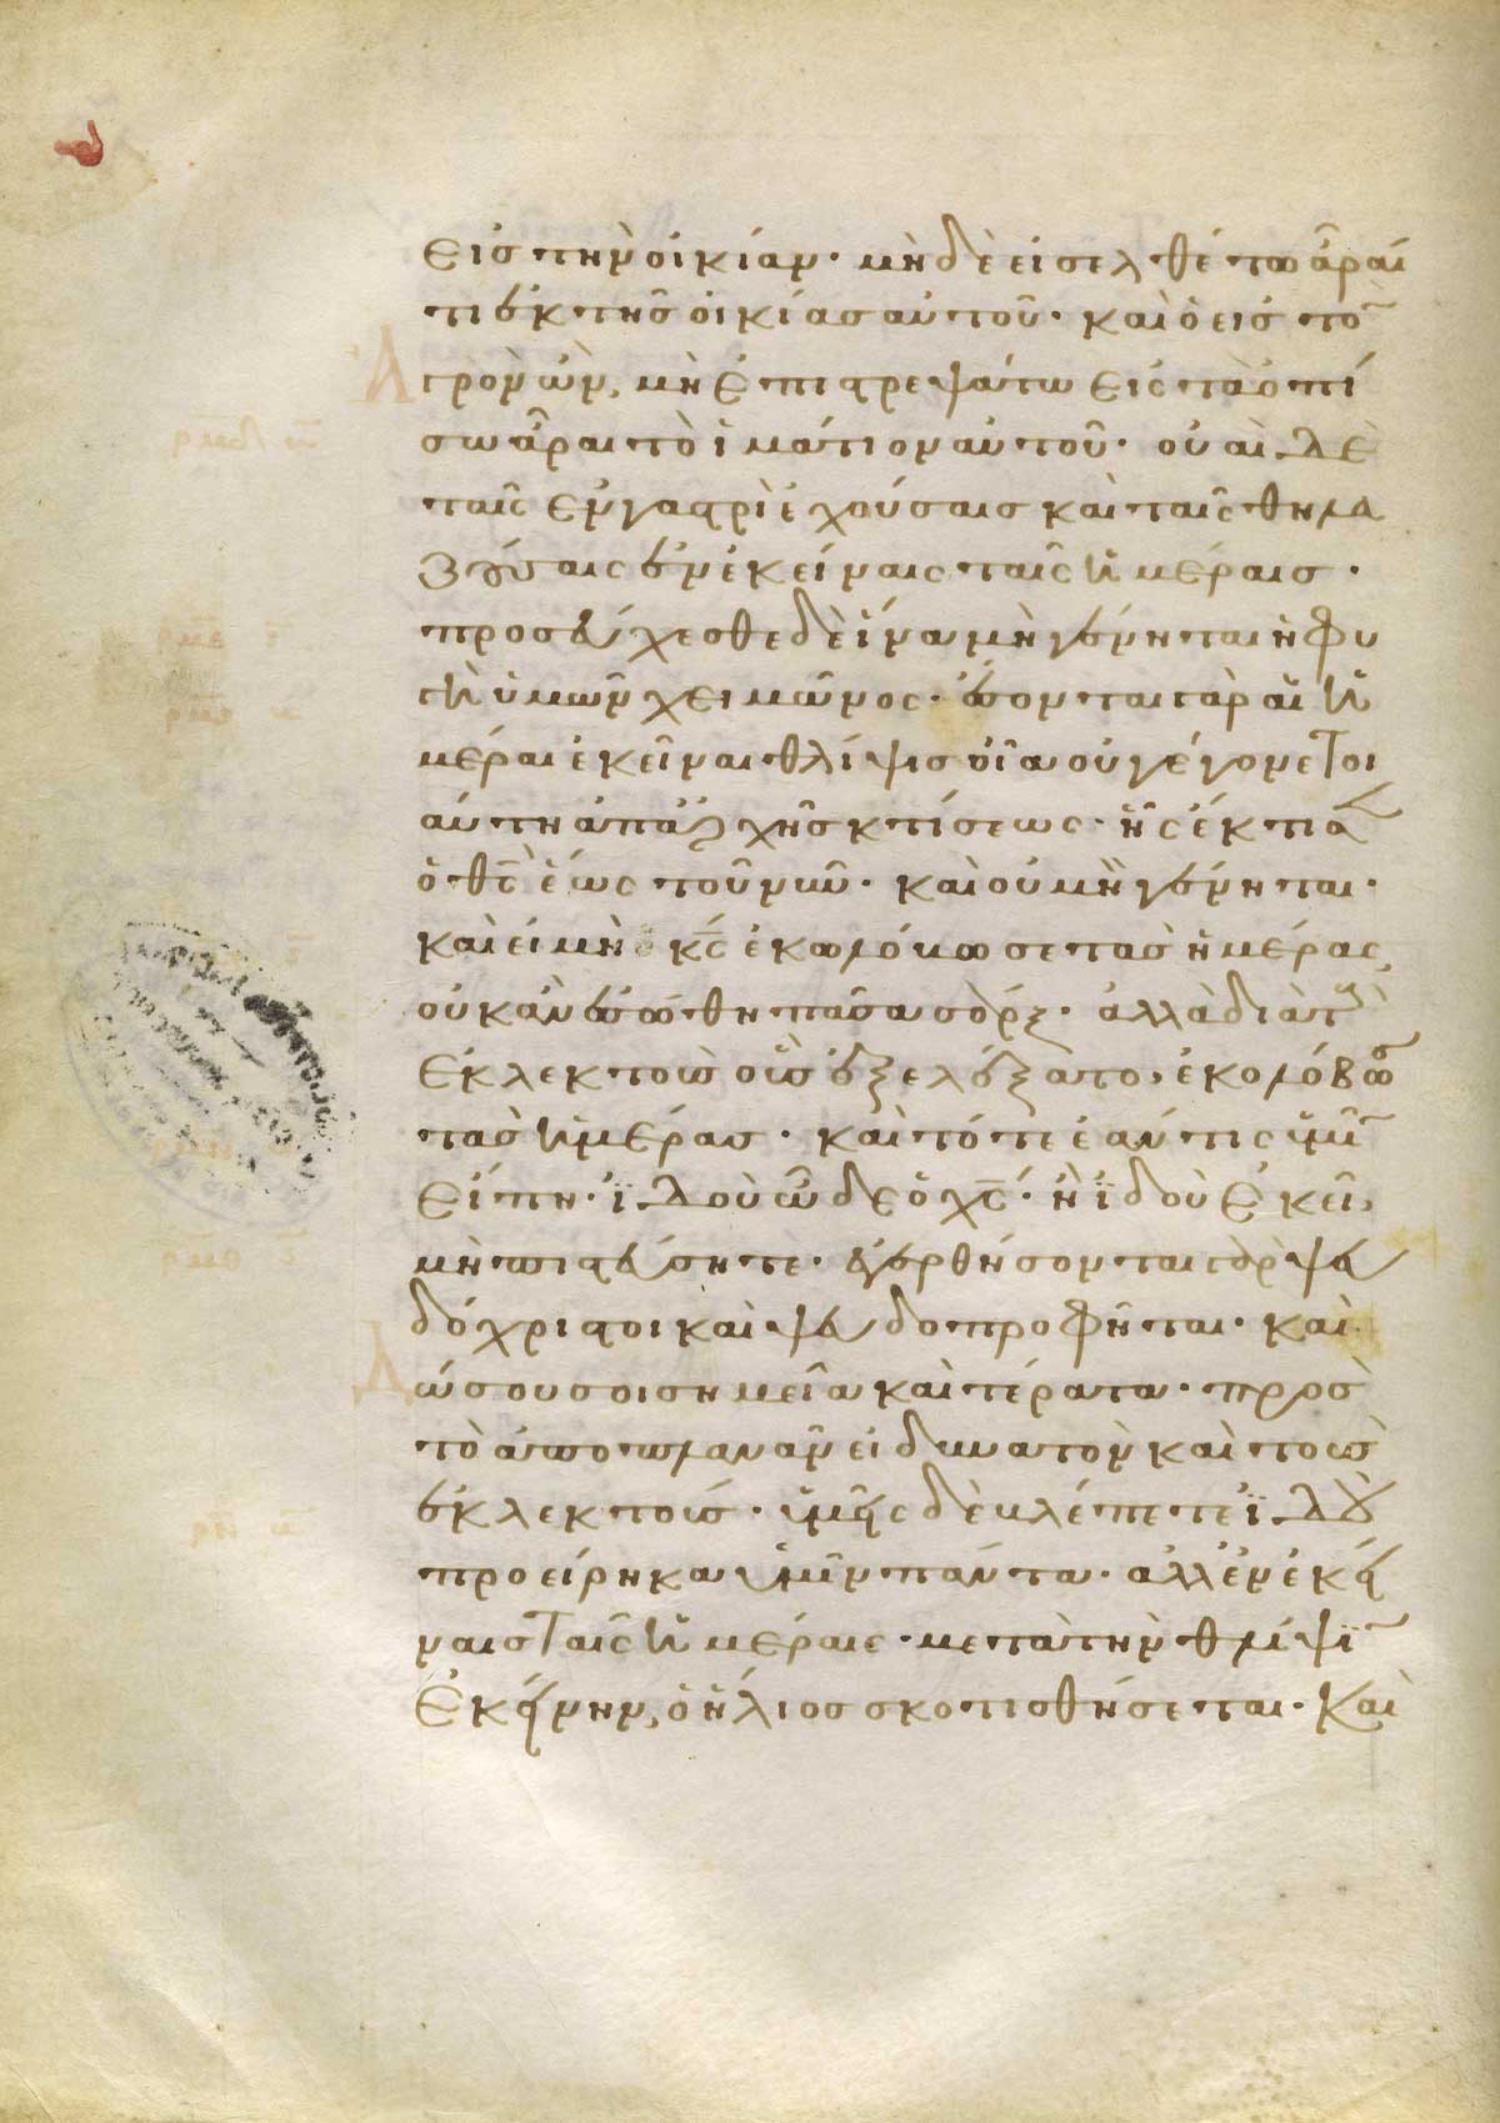 εἰς τὴν οἰκίαν· μὴ δὲ εἰσελθέτω ἆραί
τι ἐκ τῆς οἰκίας αὐτοῦ· καὶ ὁ εἰς το̅
ἀγρὸν ὢν, μὴ ἐπιστρεψάτω εἰς τὰ ὀπί
σω ἆραι τὸ ἱμάτιον αὐτοῦ· οὐαὶ δὲ
ταῖς ἐν γαστρὶ ἐχούσαις καὶ ταῖς θηλα
ζούσαις ἐν ἐκείναις ταῖς ἡμέραις·
προσεύχεσθε δὲ ἵνα μὴ γένηται ἡ φυ
γὴ ὑμῶν χειμῶνος· ἔσονται γὰρ αἱ ἡ
μέραι ἐκεῖναι θλίψις οἵα οὐ γέγονε τοι
αύτη ἀπαρχῆς κτίσεως· ἧς ἔκτισ
ὁ θς̅ ἕως τοῦ νῦν· καὶ οὐ μὴ γένηται·
καὶ εἰ μὴ ὁ κς̅ ἐκολόβωσε τὰς ἡμέρας,
οὐκ ἂν ἐσώθη πᾶσα σάρξ· ἀλλὰ διὰ τοὺς
ἐκλεκτοὺς οὓς ἐξελέξατο, ἐκολόβωσε
τὰς ἡμέρας· καὶ τότε ἐάν τις ὑμῖ̅
εἴπη· ἰδοὺ ὧδε ὁ χς̅· ἢ ἰδοὺ ἐκεῖ,
μὴ πιστεύσητε· ἐγερθήσονται γὰρ ψευ
δόχριστοι καὶ ψευδοπροφῆται· καὶ
δώσουσοι σημεῖα καὶ τέρατα· πρὸς
τὸ ἀποπλανᾶν εἰ δυνατὸν καὶ τοὺς
ἐκλεκτούς· ὑμεῖς δὲ βλέπετε ἰδοὺ
προείρηκα ὑμῖν πάντα· ἀλλ ἐν ἐκεί
ναις ταῖς ἡμέραις· μετὰ τὴν θλίψι̅
ἐκείνην, ὁ ἥλιος σκοτισθήσεται· Καὶ